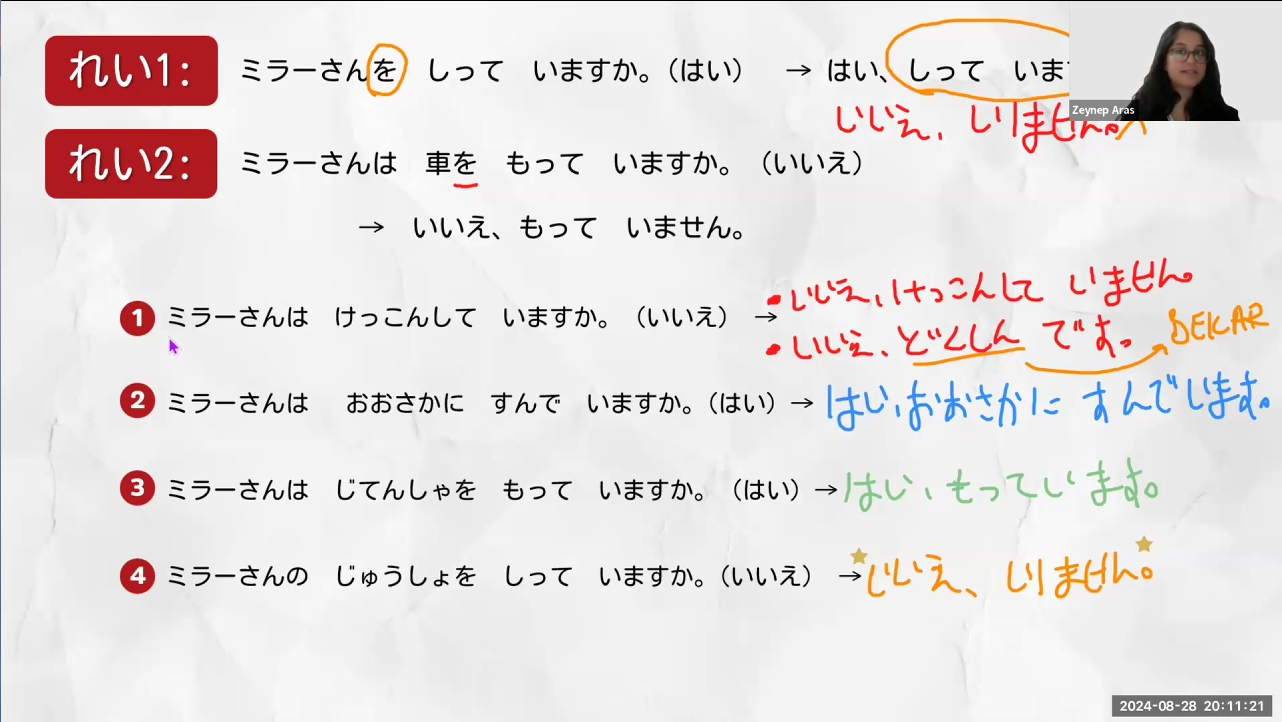 れい1: ミラーさんを しって いますか。（はい） → はい、しって いま
Zeynep Aras
いいえ、しりません。
れい2: ミラーさんは 車を もって いますか。（いいえ）
→ いいえ、もって いません。
1 ミラーさんは けっこんして いますか。（いいえ） → • いいえ、けっこんして いません。
• いいえ、どくしん です。 BEKAR
2 ミラーさんは おおさかに すんで いますか。（はい） → はい、おおさかに すんでいます。
3 ミラーさんは じてんしゃを もって いますか。（はい） → はい、もっています。
4 ミラーさんの じゅうしょを しって いますか。（いいえ） → いいえ、しりません。
2024-08-28 20:11:21